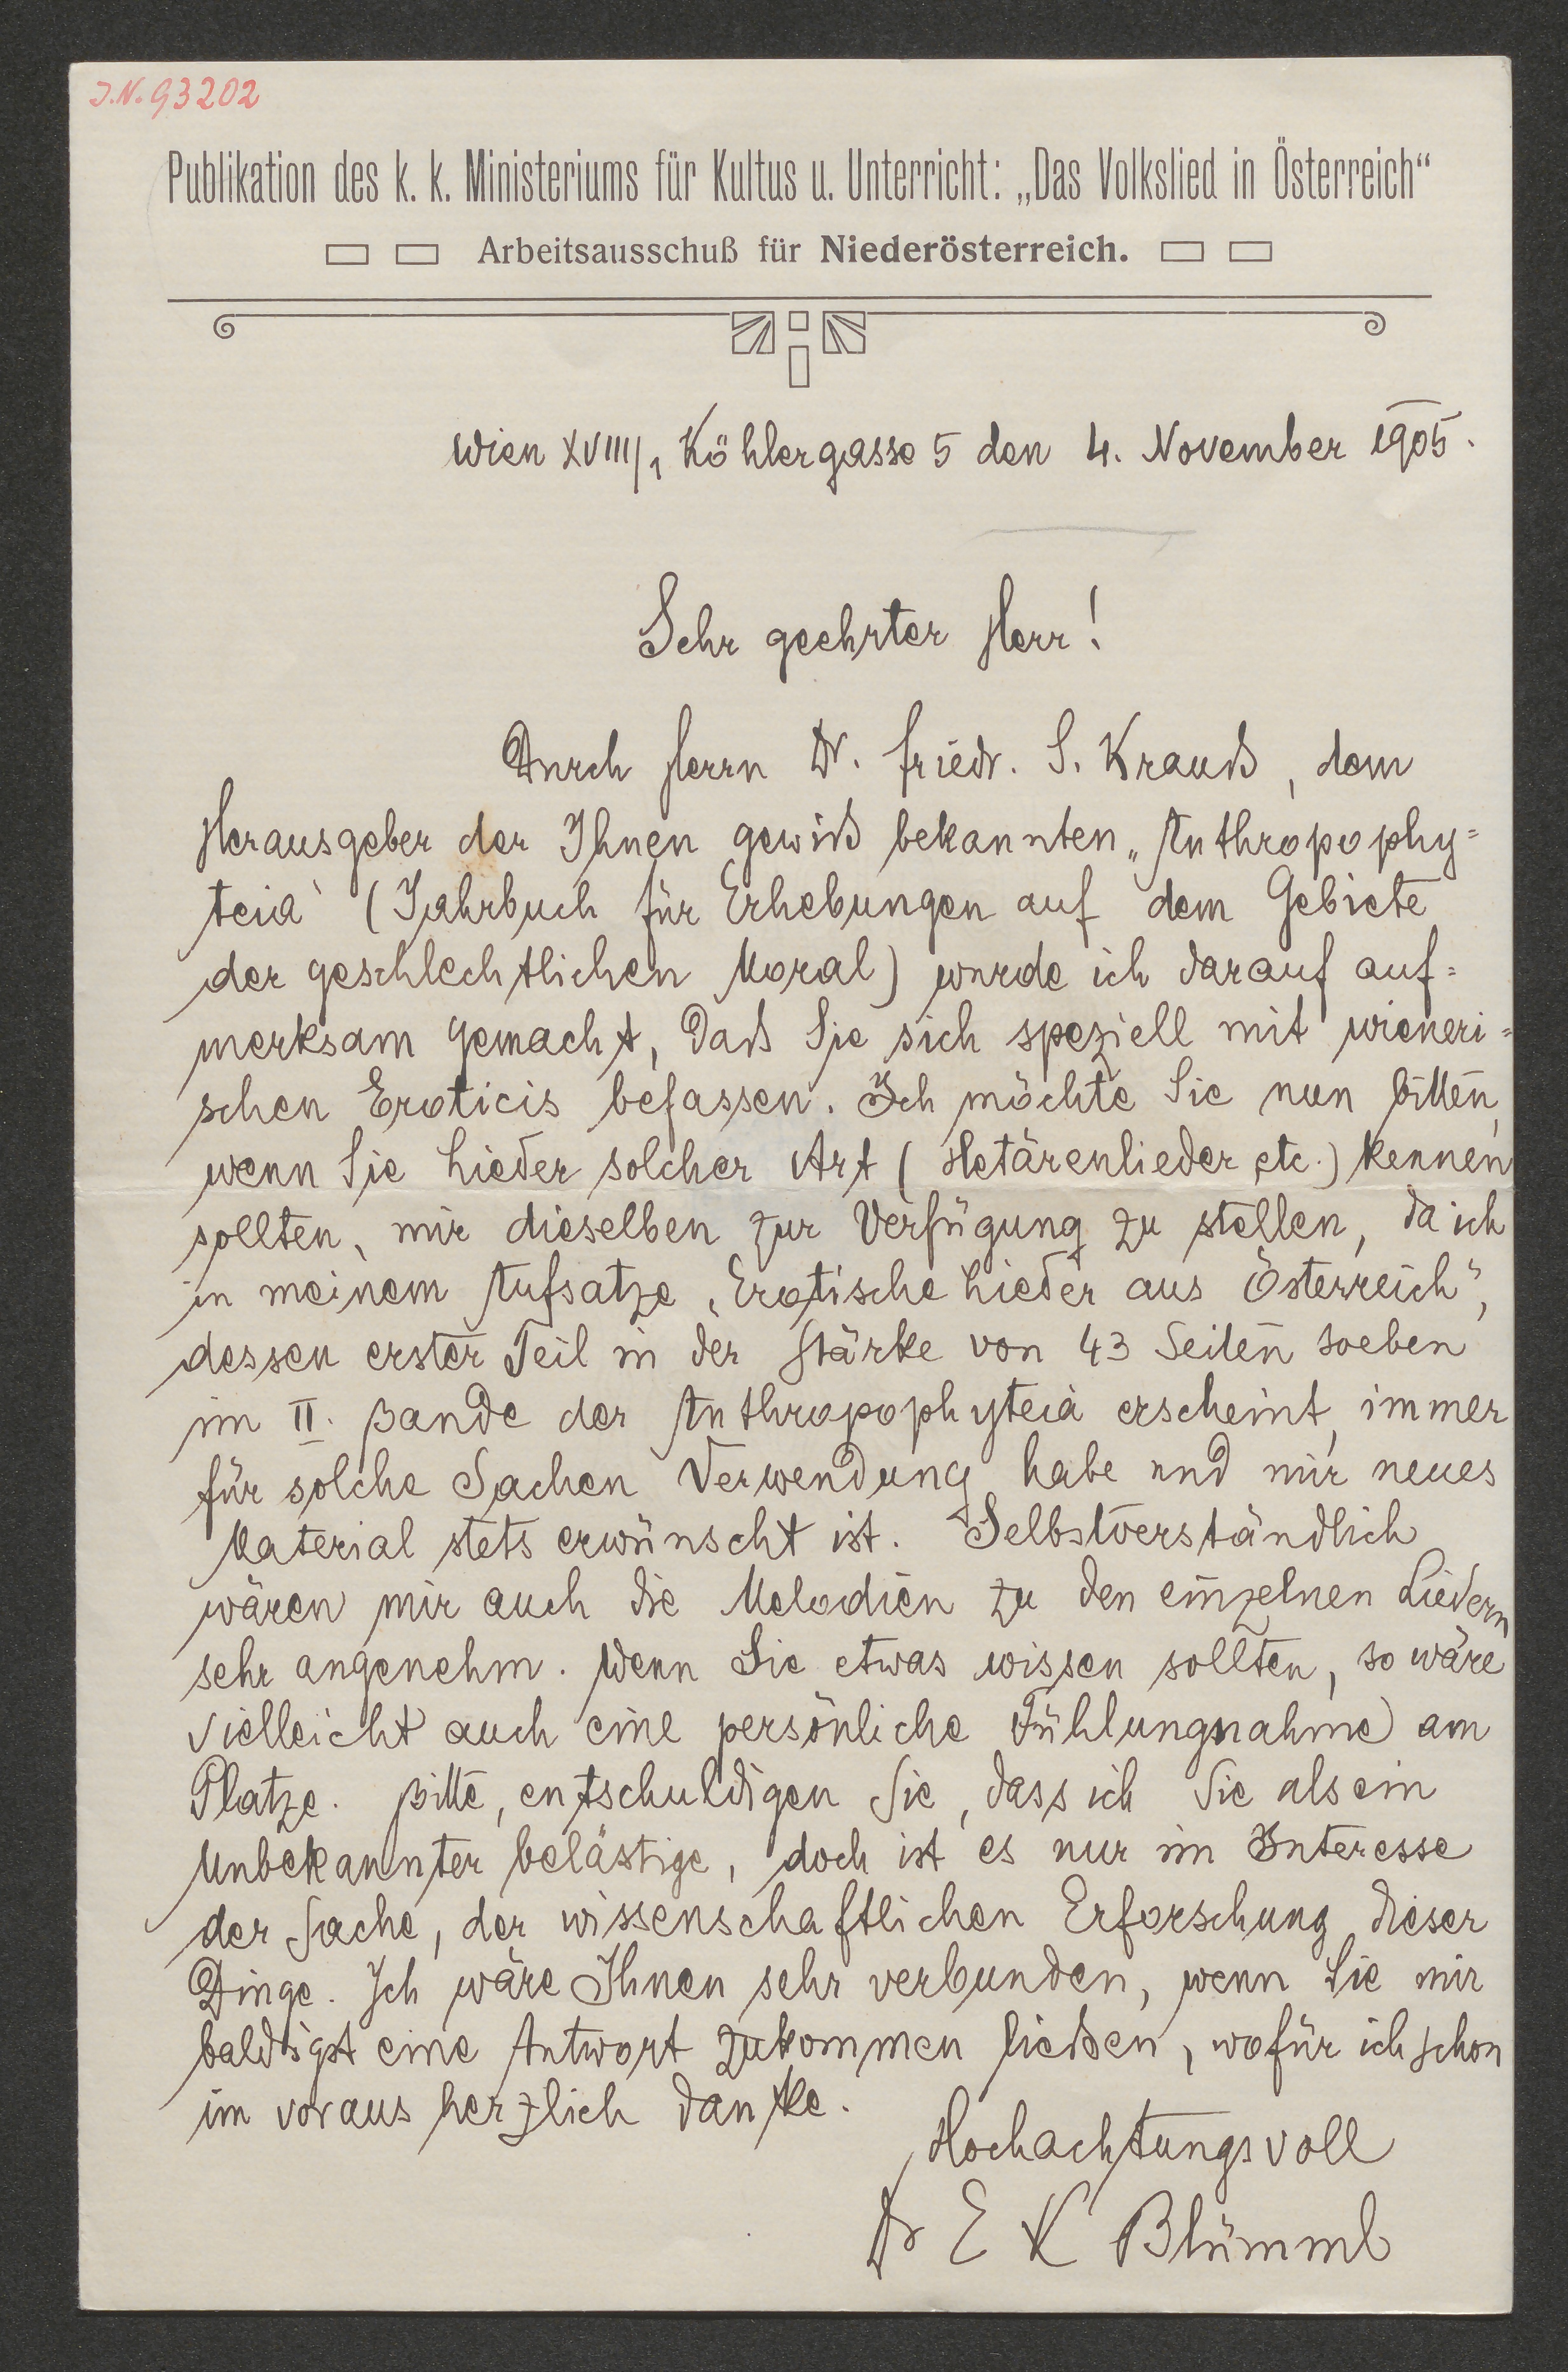 J.N. 93202
Publikation des k. k. Ministeriums für Kultus u. Unterricht: „Das Volkslied in Österreich“
Arbeitsausschuß für Niederösterreich.
Wien XVIII/1 Köhlergasse 5 den 4. November 1905.
Sehr geehrter Herr!
Durch Herrn Dr. Friedr. S. Krauß, dem
Herausgeber der Ihnen gewiß bekannten „Anthropophy=
teia“ (Jahrbuch für Erhebungen auf dem Gebiete
der geschlechtlichen Moral) wurde ich darauf auf=
merksam gemacht, daß Sie sich speziell mit wieneri=
schen Eroticis befassen. Ich möchte Sie nun bitten,
wenn Sie Lieder solcher Art (Hetärenlieder etc.) kennen
sollten, mir dieselben zur Verfügung zu stellen, da ich
in meinem Aufsatze „Erotische Lieder aus Österreich“,
dessen erster Teil in der Stärke von 43 Seiten soeben
im II. Bande der Anthropophyteia erscheint, immer
für solche Sachen Verwendung habe und mir neues
Material stets erwünscht ist. Selbstverständlich
wären mir auch die Melodien zu den einzelnen Liedern
sehr angenehm. Wenn Sie etwas wissen sollten, so wäre
vielleicht auch eine persönliche Fühlungnahme am
Platze. Bitte, entschuldigen Sie, dass ich Sie als ein
Unbekannter belästige, doch ist es nur im Interesse
der Sache, der wissenschaftlichen Erforschung dieser
Dinge. Ich wäre Ihnen sehr verbunden, wenn Sie mir
baldigst eine Antwort zukommen ließen, wofür ich schon
im voraus herzlich danke.
Hochachtungsvoll
Dr E K Blümml